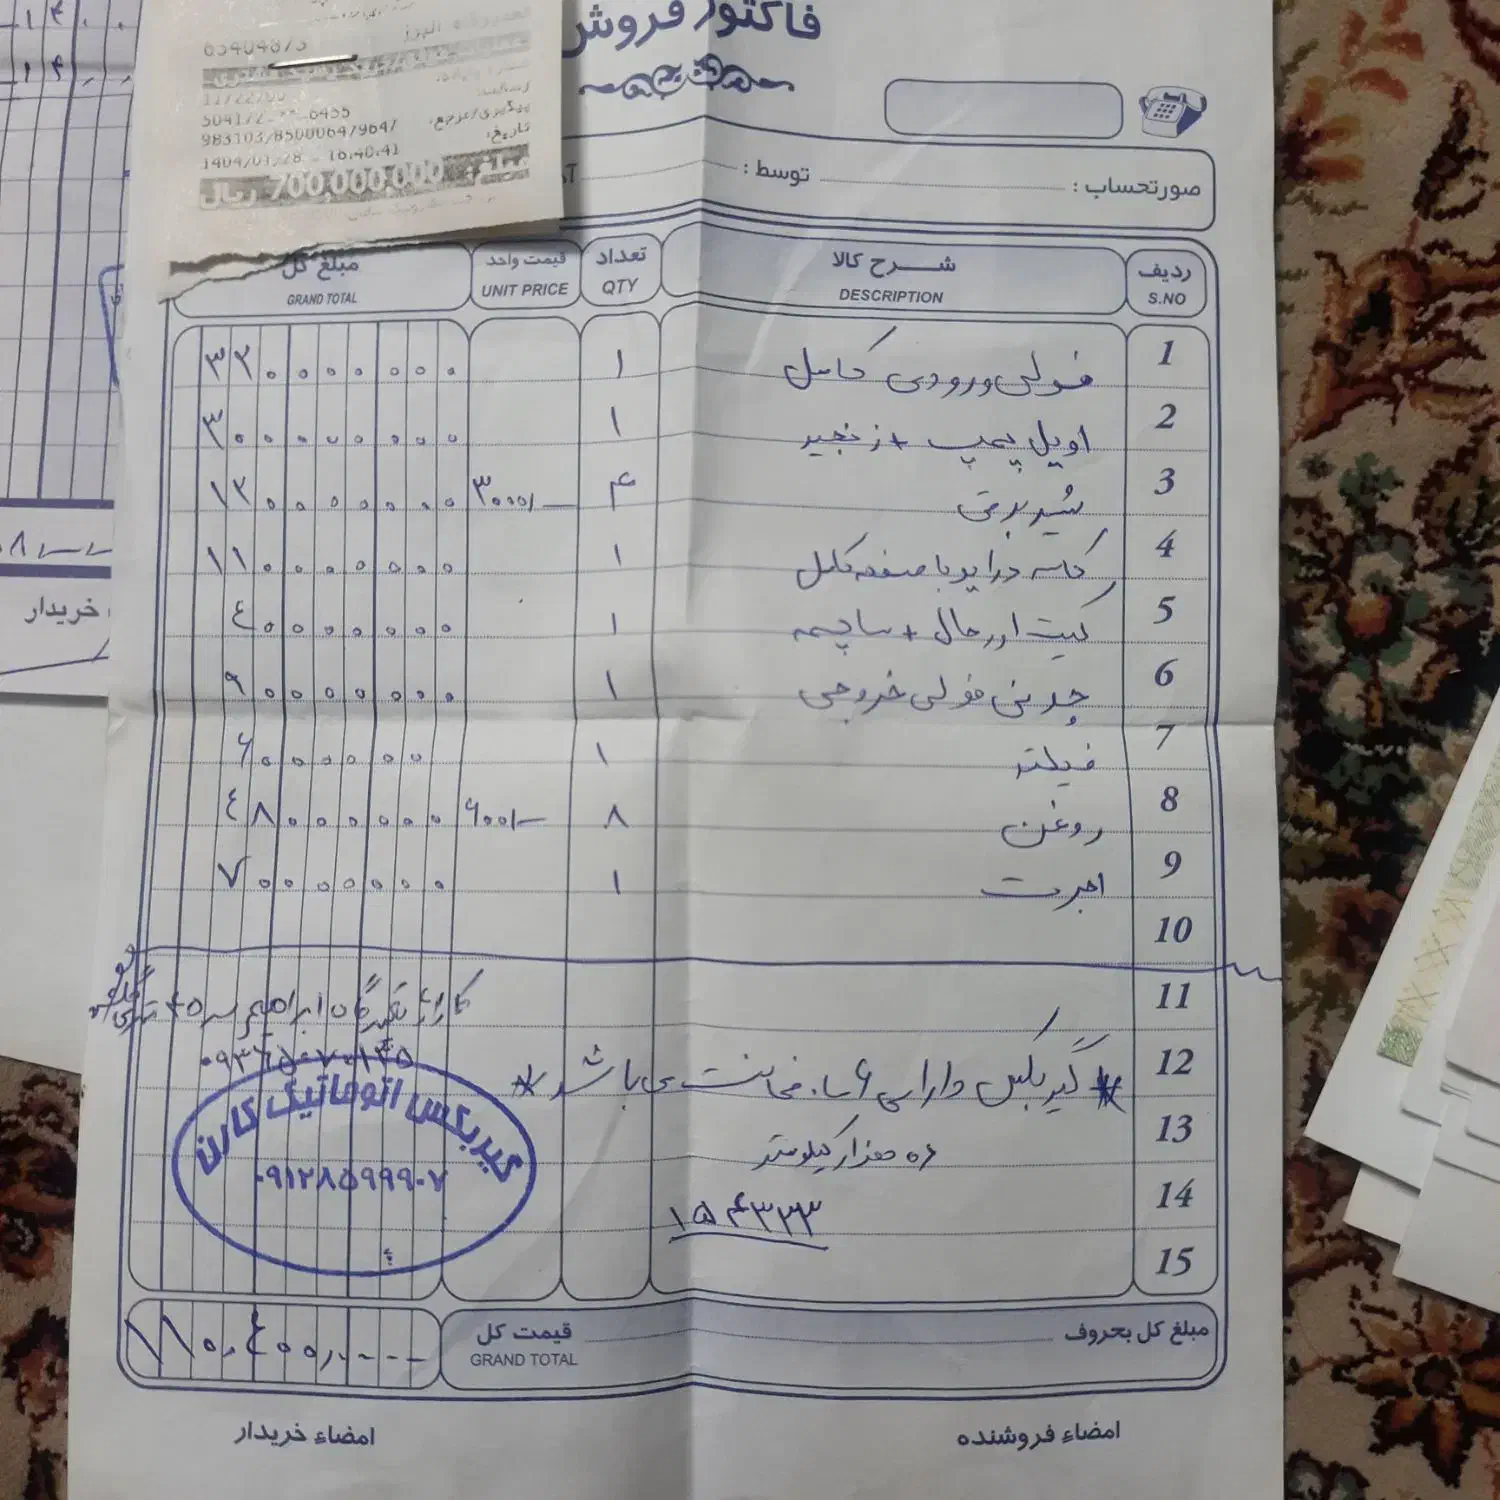 فاکتور فروش
63404873
رسالت:
5041/2 ** 6455
پیگیری/مرجع:
تاریخ:
1404/01/28 - 16:40:41
مبلغ: 700,000,000 ریال
صورتحساب : توسط :
ردیف شرح کالا تعداد قیمت واحد مبلغ کل
S.NO DESCRIPTION QTY UNIT PRICE GRAND TOTAL
1 فولی ورودی کامل ۱ ۳۲۰۰۰۰۰۰۰
2 اویل پمپ + زنجیر ۱ ۳۰۰۰۰۰۰۰۰
3 شیر برقی ۴ ۳۰۰۰/ـ ۱۲۰۰۰۰۰۰۰
4 کاسه درایو با صفحه کامل ۱ ۱۱۰۰۰۰۰۰۰
5 کیت اورحال + ساچمه ۱ ۴۰۰۰۰۰۰۰
6 چدنی فولی خروجی ۱ ۹۰۰۰۰۰۰۰
7 فیلتر ۱ ۶۰۰۰۰۰۰
8 روغن ۸ ۶۰۰/ـ ۴۸۰۰۰۰۰۰
9 اجرت ۱ ۷۰۰۰۰۰۰۰
10
11
12 * گیربکس دارای ۶ ماه ضمانت می باشد *
13
14 ۱۵۴۳۳۳
15
گیربکس اتوماتیک کارن
۰۹۱۲۸۵۹۹۹۰۷
مبلغ کل بحروف قیمت کل
GRAND TOTAL
امضاء فروشنده امضاء خریدار
خریدار